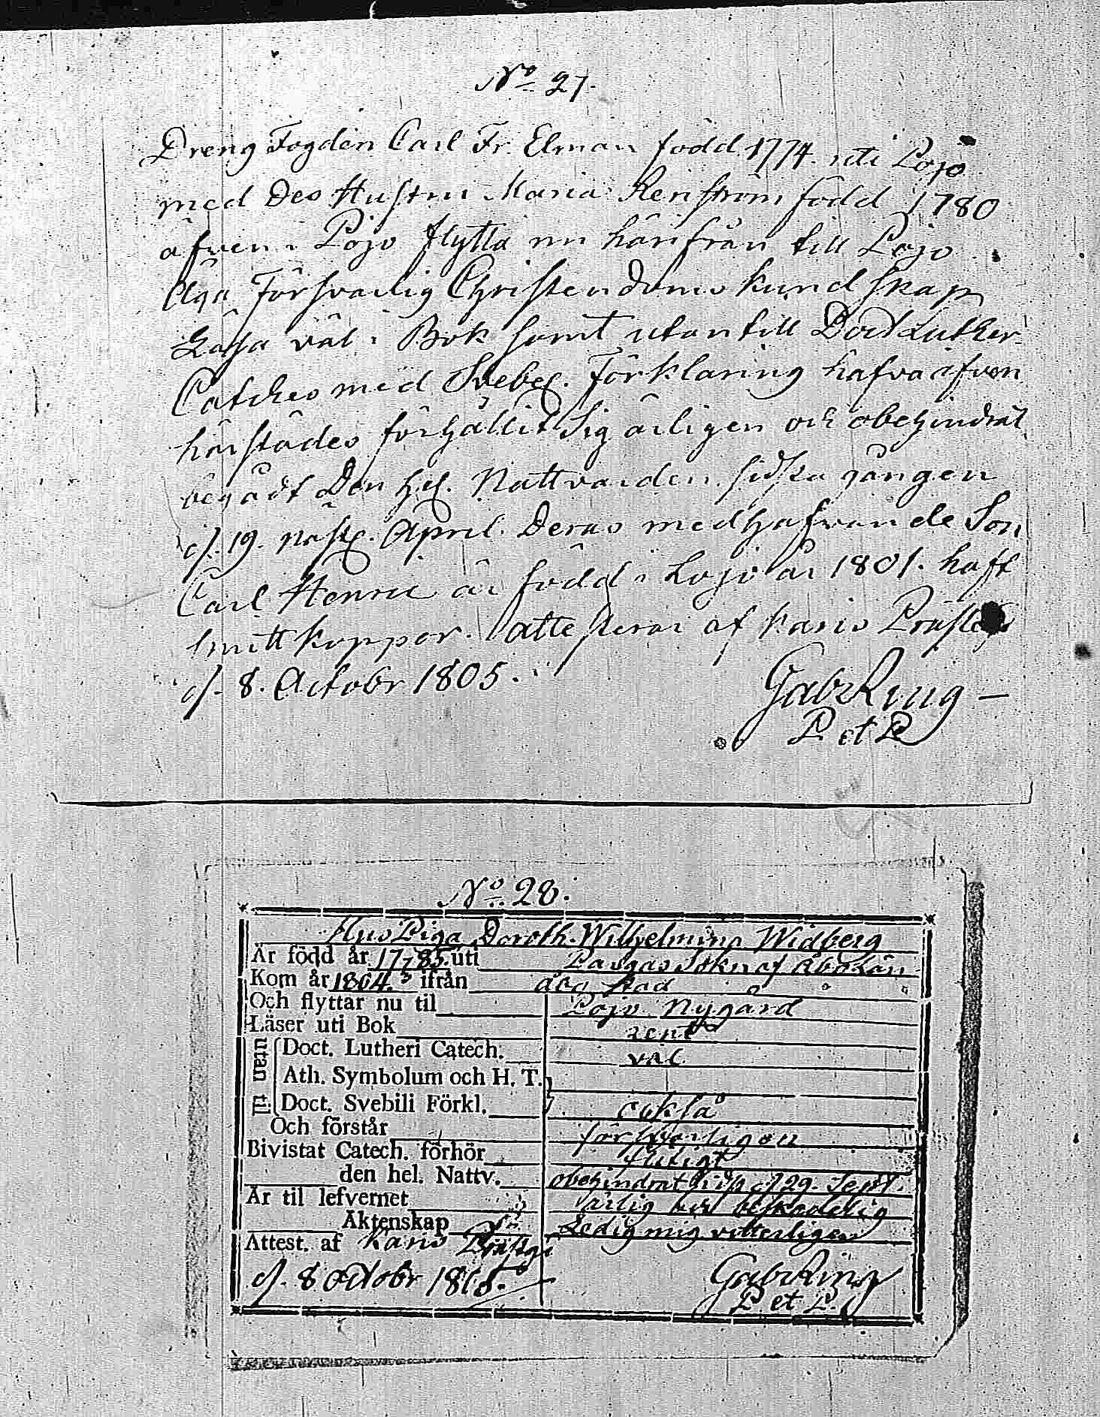 No 27.
Dreng Fogden Carl Fr. Elman född 1774. uti Pojo
med Des Hustru Maria Renström född 1780
äfven i Pojo flytta nu härifrån till Pojo
Äga Försvarlig Christendoms kundskap
Läsa väl i Bok samt utantill Doct Luther.
Catches med Svebel. Förklaring hafva äfven
härstädes förhållit Sig ärligen och obehindrat
begådt Den hel. Nattvarden sidsta gången
d. 19. April. Deras medhafvande Son
Carl Henric är född i Lojo år 1801. haft
Smittkoppor. atesterar af Karis Prästegd
d. 8. Octobr 1805.
Gab Ring
P et P
No 28.
Hus Piga Doroth. Wilhelmina Widberg
Är född år 1785 uti Pargas Sokn af Åbo Län
Kom år 1804 ifrån Åbo Stad
Och flyttar nu til Pojo Nygård
Läser uti Bok rent
utan til
Doct. Lutheri Catech. väl
Ath. Symbolum och H. T.
Doct. Svebili Förkl. också
Och förstår försvarligen
Bivistat Catech. förhör flitigt
den hel. Nattv. obehindrat sidst d. 29. Sept.
Är til lefvernet ärlig och beskedelig
Äktenskap Ledig mig vitterligen
Attest. af Karis Prästgd
d. 8 Octobr 1805.
Gab Ring
P et P.